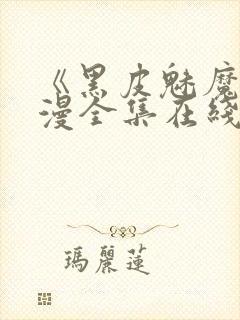 《黑皮魅魔
漫全集在线
瑪麗蓮